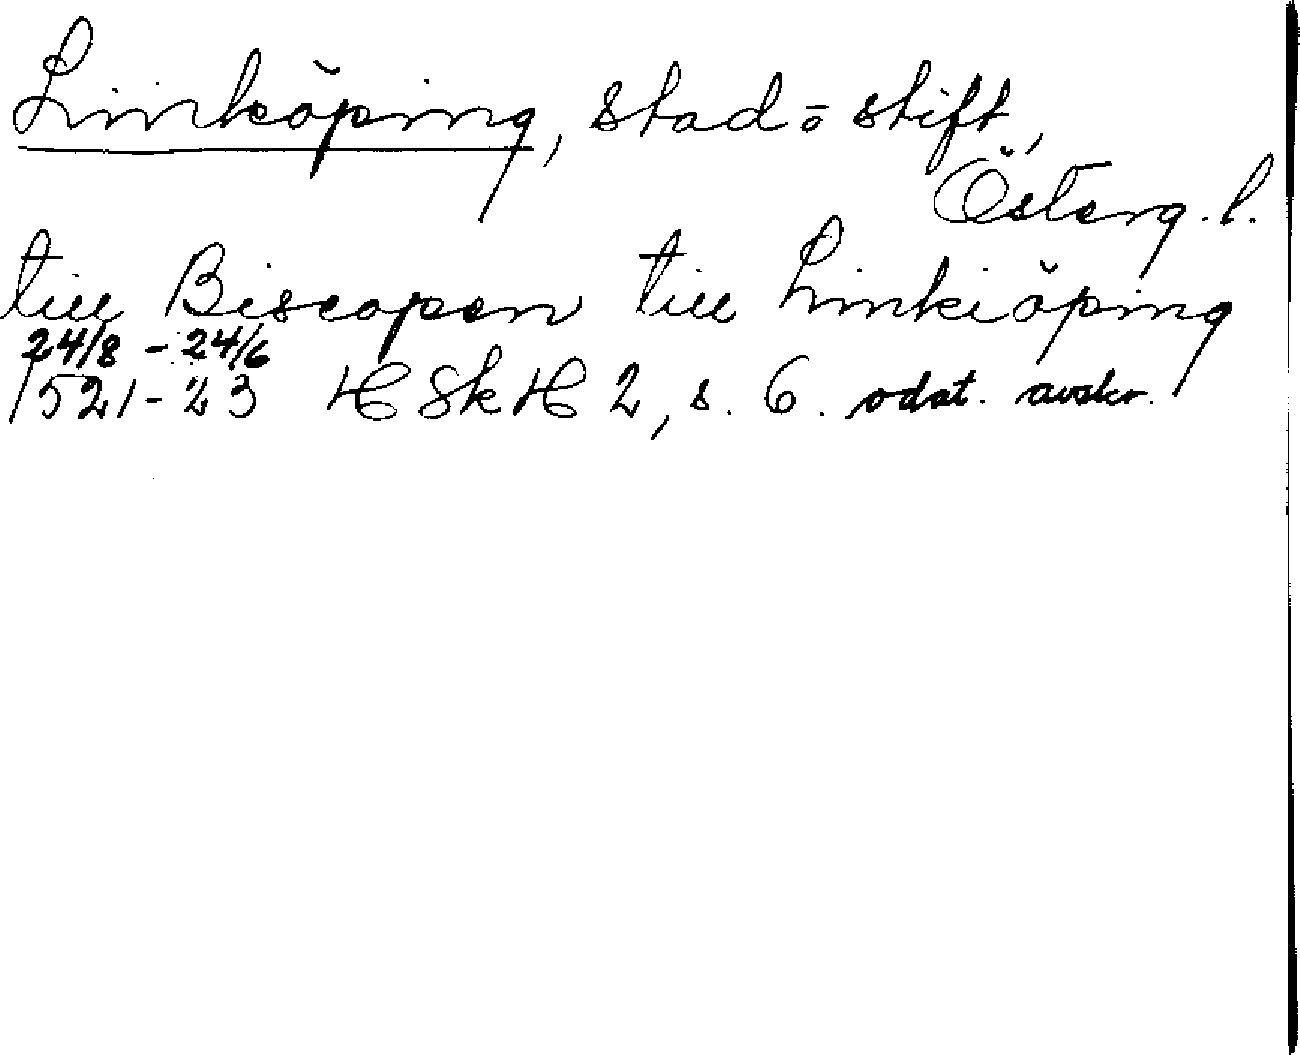 Linköping, stad o stift,
Österg. l.
till Biscopen till Linkiöping
24/8 - 24/6
1521-23 HSkH 2, s. 6. odat. avskr.